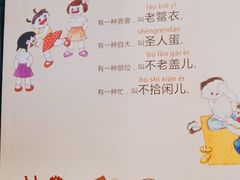 lǎo biē yī
有一种吝啬,叫老鳖衣.
shèngréndàn
有一种自大,叫圣人蛋.
bù lǎo gài ér
有一种部位,叫不老盖儿.
bù shí xián ér
有一种忙,叫不拾闲儿.